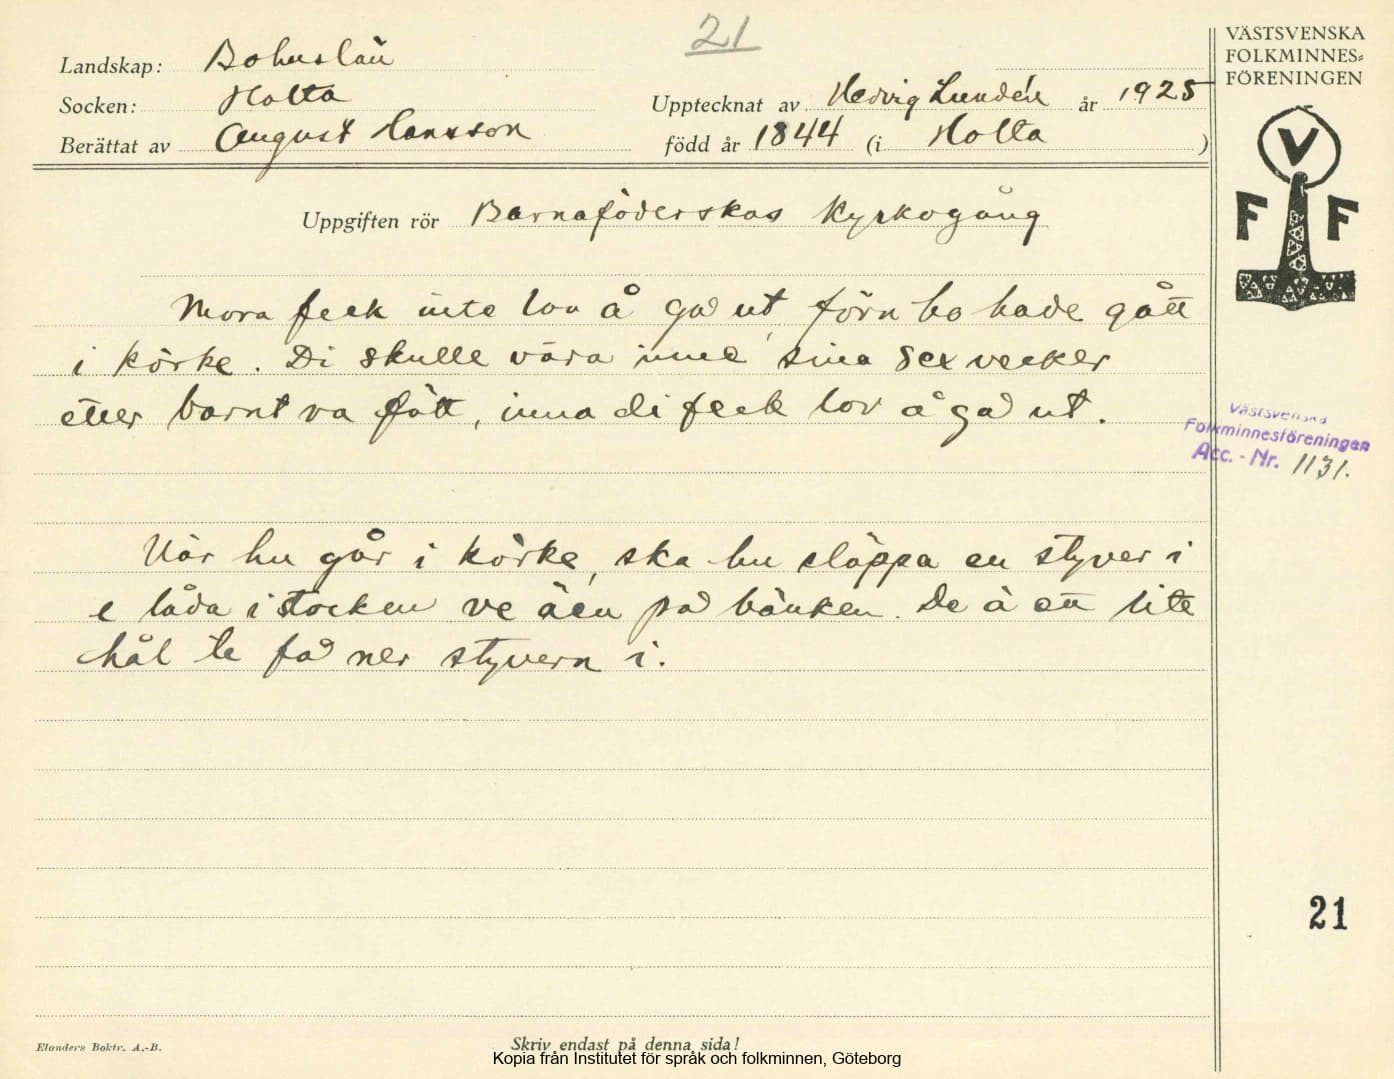 21
VÄSTSVENSKA
FOLKMINNES=
FÖRENINGEN
Landskap: Bohuslän
Socken: Holta
Upptecknat av Hedvig Lundén år 1925
Berättat av August Hansson
född år 1844 (i Holta )
V
F F
Uppgiften rör Barnaföderskas Kyrkogång
Mora feck inte lov å gå ut, förn ho hade gått
i körke. Di skulle våra inne sina sex vecker
etter barnt va fött, inna di feck lov å gå ut.
Västsvenska
Folkminnesföreningen
Acc. - Nr. 1131.
När hu går i körke, ska hu släppa en styver i
e låda i stocken ve äen på bänken. De ä ett lite
hål te få ner styvern i.
21
Elanders Boktr. A.-B.
Skriv endast på denna sida!
Kopia från Institutet för språk och folkminnen, Göteborg